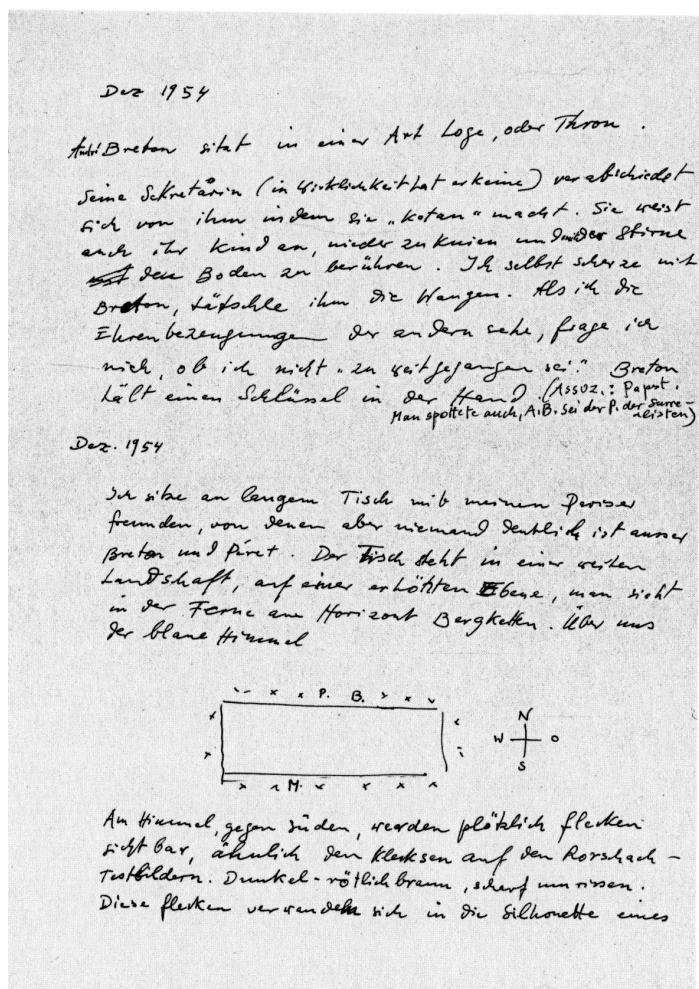 Dez 1954
André Breton sitzt in einer Art Loge, oder Thron.
Seine Sekretärin (in Wirklichkeit hat er keine) verabschiedet
sich von ihm indem sie „kotau" macht. Sie weist
auch ihr Kind an, nieder zu knien und mit der Stirne
den Boden zu berühren. Ich selbst scherze mit
Breton, tätschle ihm die Wangen. Als ich die
Ehrenbezeugungen der andern sehe, frage ich
mich, ob ich nicht „zu weit gegangen sei." Breton
hält einen Schlüssel in der Hand (Assoz.: Papst.
Man spottete auch, A.B. sei der P. der Surre-
alisten)
Dez. 1954
Ich sitze an langem Tisch mit meinen Pariser
freunden, von denen aber niemand deutlich ist ausser
Breton und Péret. Der Tisch steht in einer weiten
Landschaft, auf einer erhöhten Ebene, man sieht
in der Ferne am Horizont Bergketten. Über uns
der blaue Himmel
P. B.
N
W O
S
M.
Am Himmel, gegen Süden, werden plötzlich flecken
sichtbar, ähnlich den Klecksen auf den Rorschach-
Testbildern. Dunkel-rötlichbraun, scharf umrissen.
Diese flecken verwandeln sich in die Silhouette eines